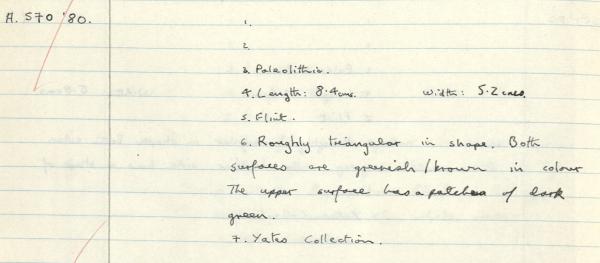 A. 570 '80.
1.
2.
3. Paleolithic.
4. Length: 8.4cms. Width: 5.2cms.
5. Flint.
6. Roughly triangular in shape. Both
surfaces are greenish/brown in colour
The upper surface has a patches of dark
green.
7. Yates Collection.